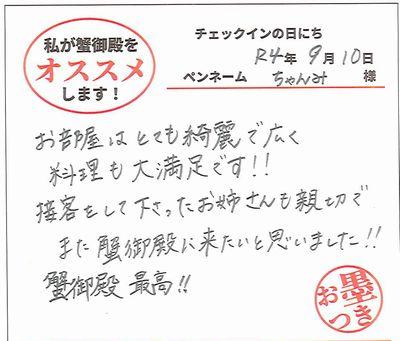 私が蟹御殿を
オススメ
します！
チェックインの日にち
R4年 9月 10日
ペンネーム ちゃんみ 様
お部屋はとても綺麗で広く
料理も大満足です!!
接客をして下さったお姉さんも親切で
また蟹御殿に来たいと思いました!!
蟹御殿 最高!!
お墨つき